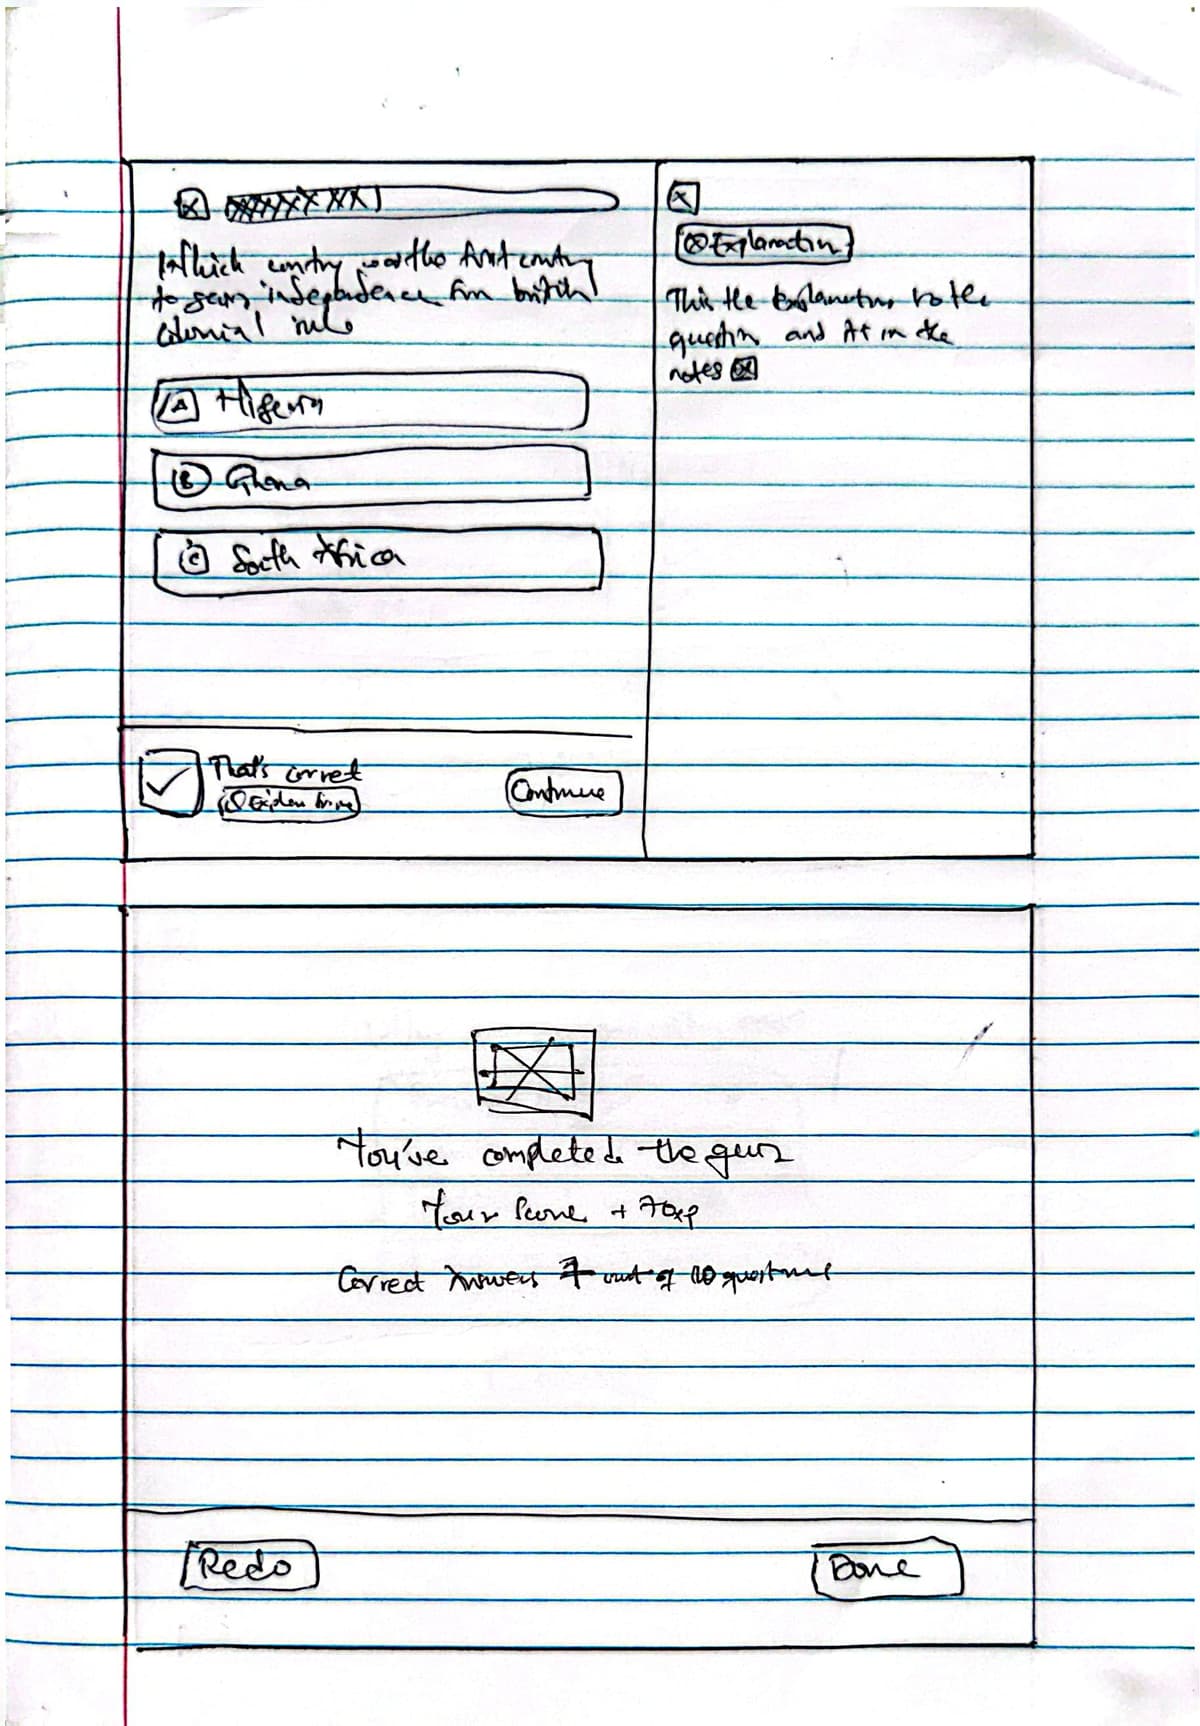 Which country was the first country
to gain independence from british
colonial rule
A Nigeria
B Ghana
C South Africa
That's correct
Explanation
Continue
Explanation
This the Explanation to the
question and it in the
notes
You've completed the quiz
Your Score + 70xp
Correct Answers 7 out of 10 questions
Redo
Done